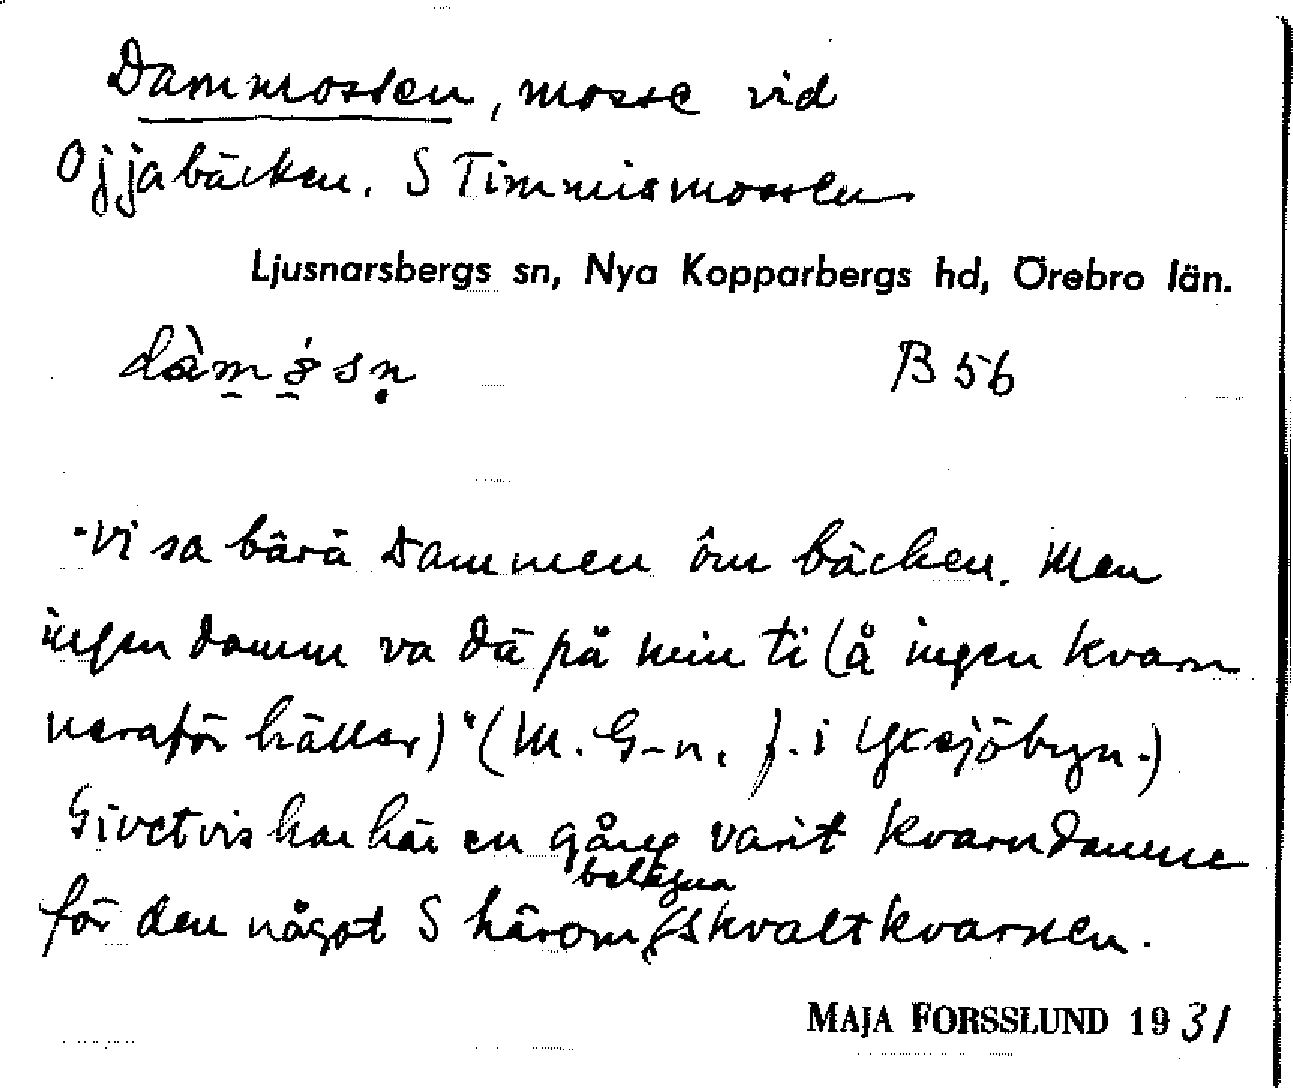 Dammossen, mosse vid
Ojjabäcken. S Timmismossen
Ljusnarsbergs sn, Nya Kopparbergs hd, Örebro län.
B 56
"Vi sa bärä Dammen ôm bäcken. Men
ingen damm va dä på min ti (å ingen kvarn
neraför häller)" (M. G-n, f. i Yxsjöbyn.)
Givetvis har här en gång varit kvarndamm
för den något S härom belägna skvaltkvarnen.
MAJA FORSSLUND 1931